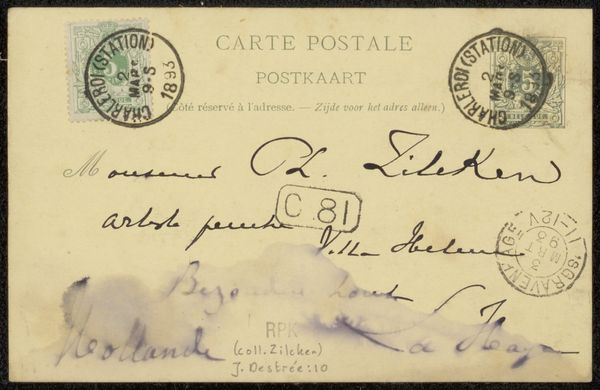 CARTE POSTALE
POSTKAART
(Côté réservé à l'adresse. — Zijde voor het adres alleen.)
5
CHARLEROI (STATION)
2
MARS
9-S
1893
5
CHARLEROI (STATION)
2
MARS
9-S
1893
Monsieur Ph. Zilcken
C 81
artiste peintre
Villa Helene
'SGRAVENHAGE
3
MRT
93
11-12V
Bezuidenhout
La Haye
Hollande
RPK
(coll. Zilcken)
J. Destrée: 10